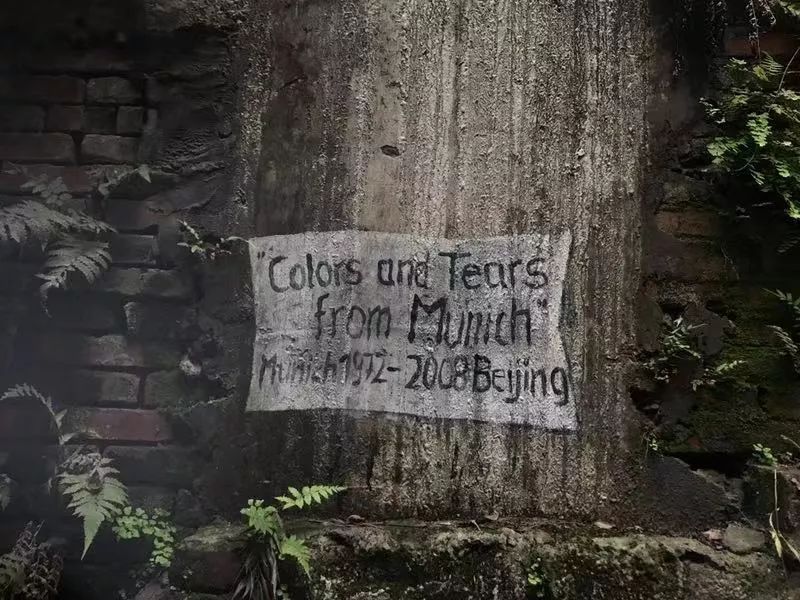 "Colors and Tears
from Munich"
Munich 1972-2008 Beijing